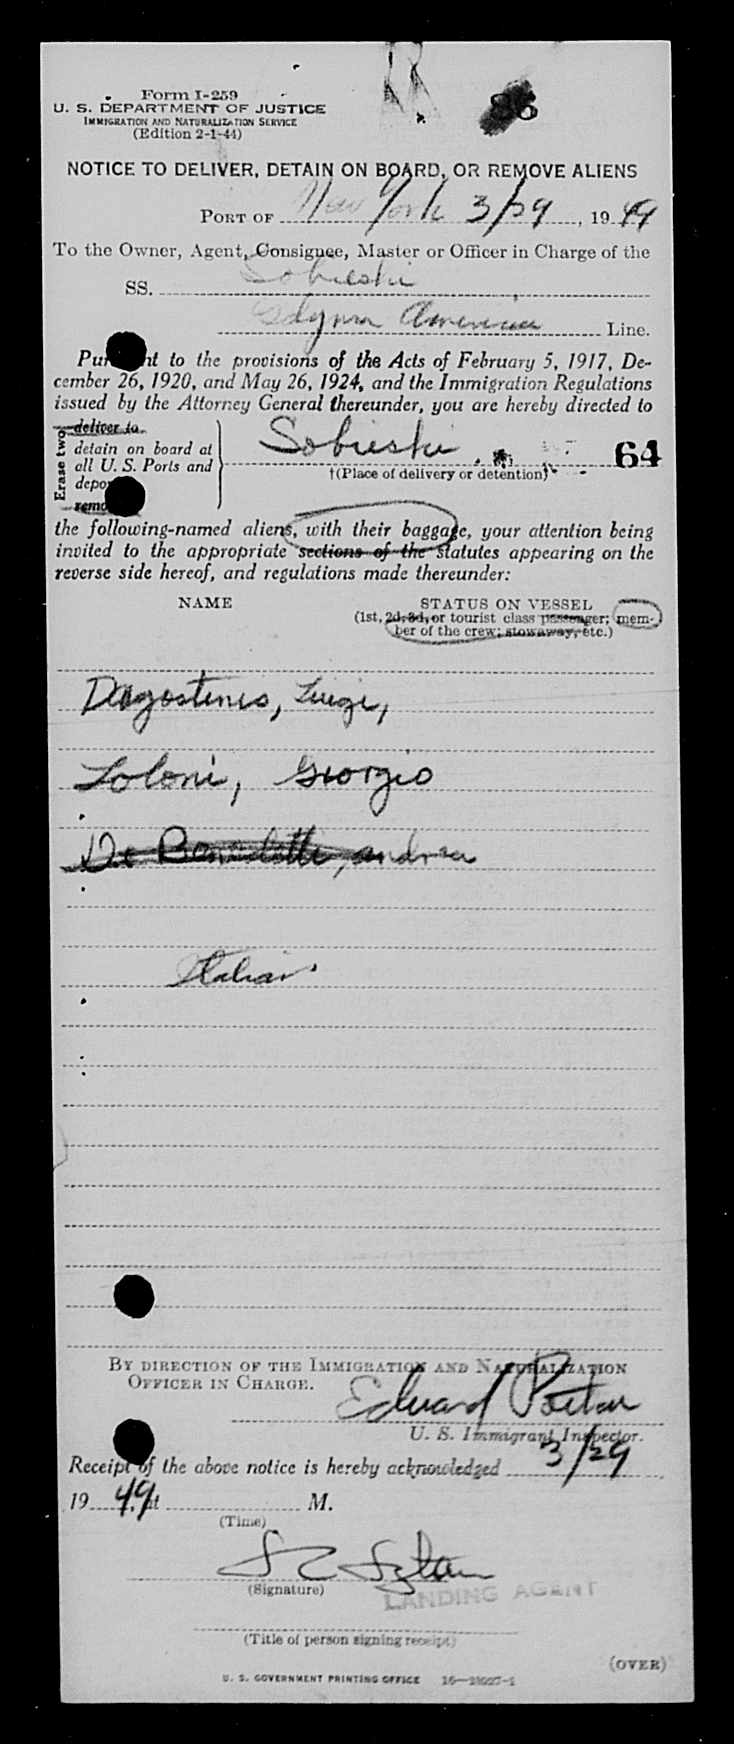 Form I-259
U. S. DEPARTMENT OF JUSTICE
IMMIGRATION AND NATURALIZATION SERVICE
(Edition 2-1-44)
NOTICE TO DELIVER, DETAIN ON BOARD, OR REMOVE ALIENS
PORT OF New York 3/29, 1949
To the Owner, Agent, Consignee, Master or Officer in Charge of the
SS. Sobieski
Gdynia America Line.
Pur nt to the provisions of the Acts of February 5, 1917, De-
cember 26, 1920, and May 26, 1924, and the Immigration Regulations
issued by the Attorney General thereunder, you are hereby directed to
Erase two
deliver to
detain on board at
all U. S. Ports and
depo
remo
Sobieski 64
†(Place of delivery or detention)
the following-named aliens, with their baggage, your attention being
invited to the appropriate sections of the statutes appearing on the
reverse side hereof, and regulations made thereunder:
NAME STATUS ON VESSEL
(1st, 2d, 3d, or tourist class passenger; mem-
ber of the crew; stowaway, etc.)
Dagostinis, Luigi,
Loloni, Giorgio
De Benedetti, Andrea
Italian
BY DIRECTION OF THE IMMIGRATION AND NATURALIZATION
OFFICER IN CHARGE.
Eduard
U. S. Immigrant Inspector.
Receipt of the above notice is hereby acknowledged 3/29
1949, at M.
(Time)
(Signature)
LANDING AGENT
(Title of person signing receipt)
(OVER)
U. S. GOVERNMENT PRINTING OFFICE